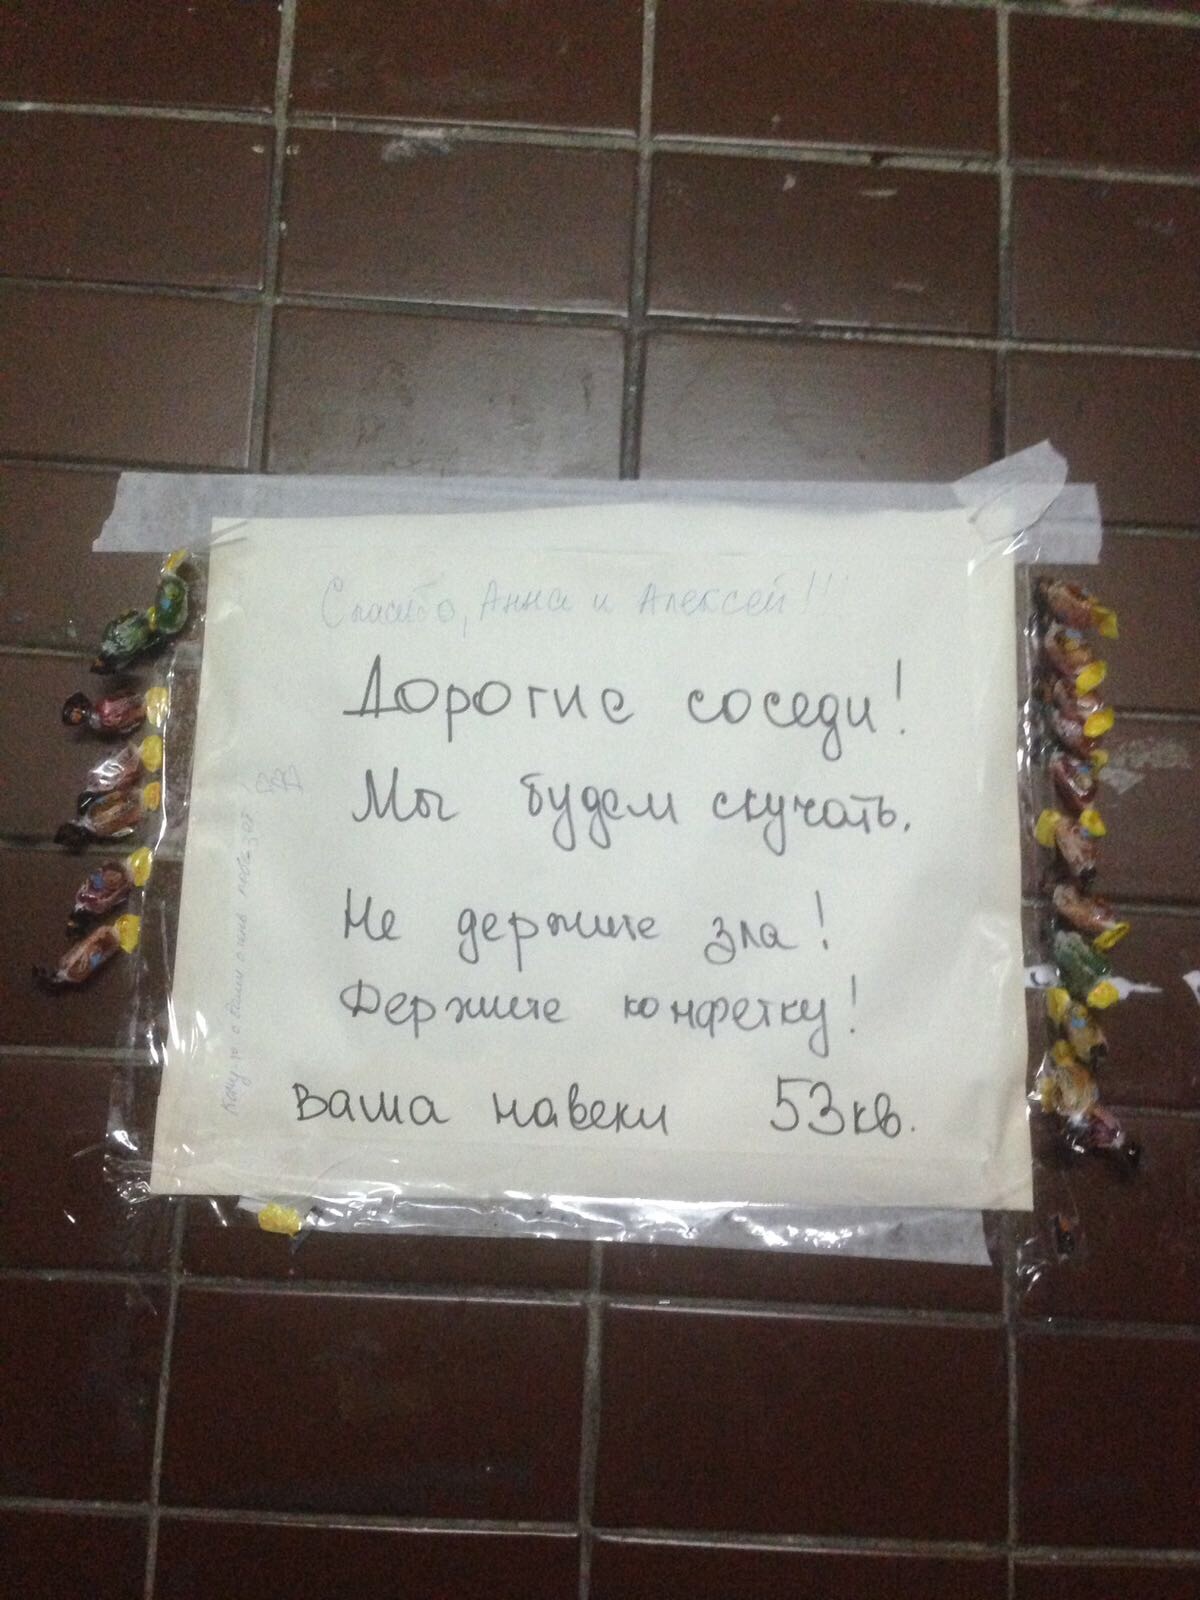 Спасибо, Анна и Алексей!!!
Дорогие соседи!
Мы будем скучать.
Не держите зла!
Держите конфетку!
Ваша навеки 53кв.
Кому-то с Вами очень повезёт